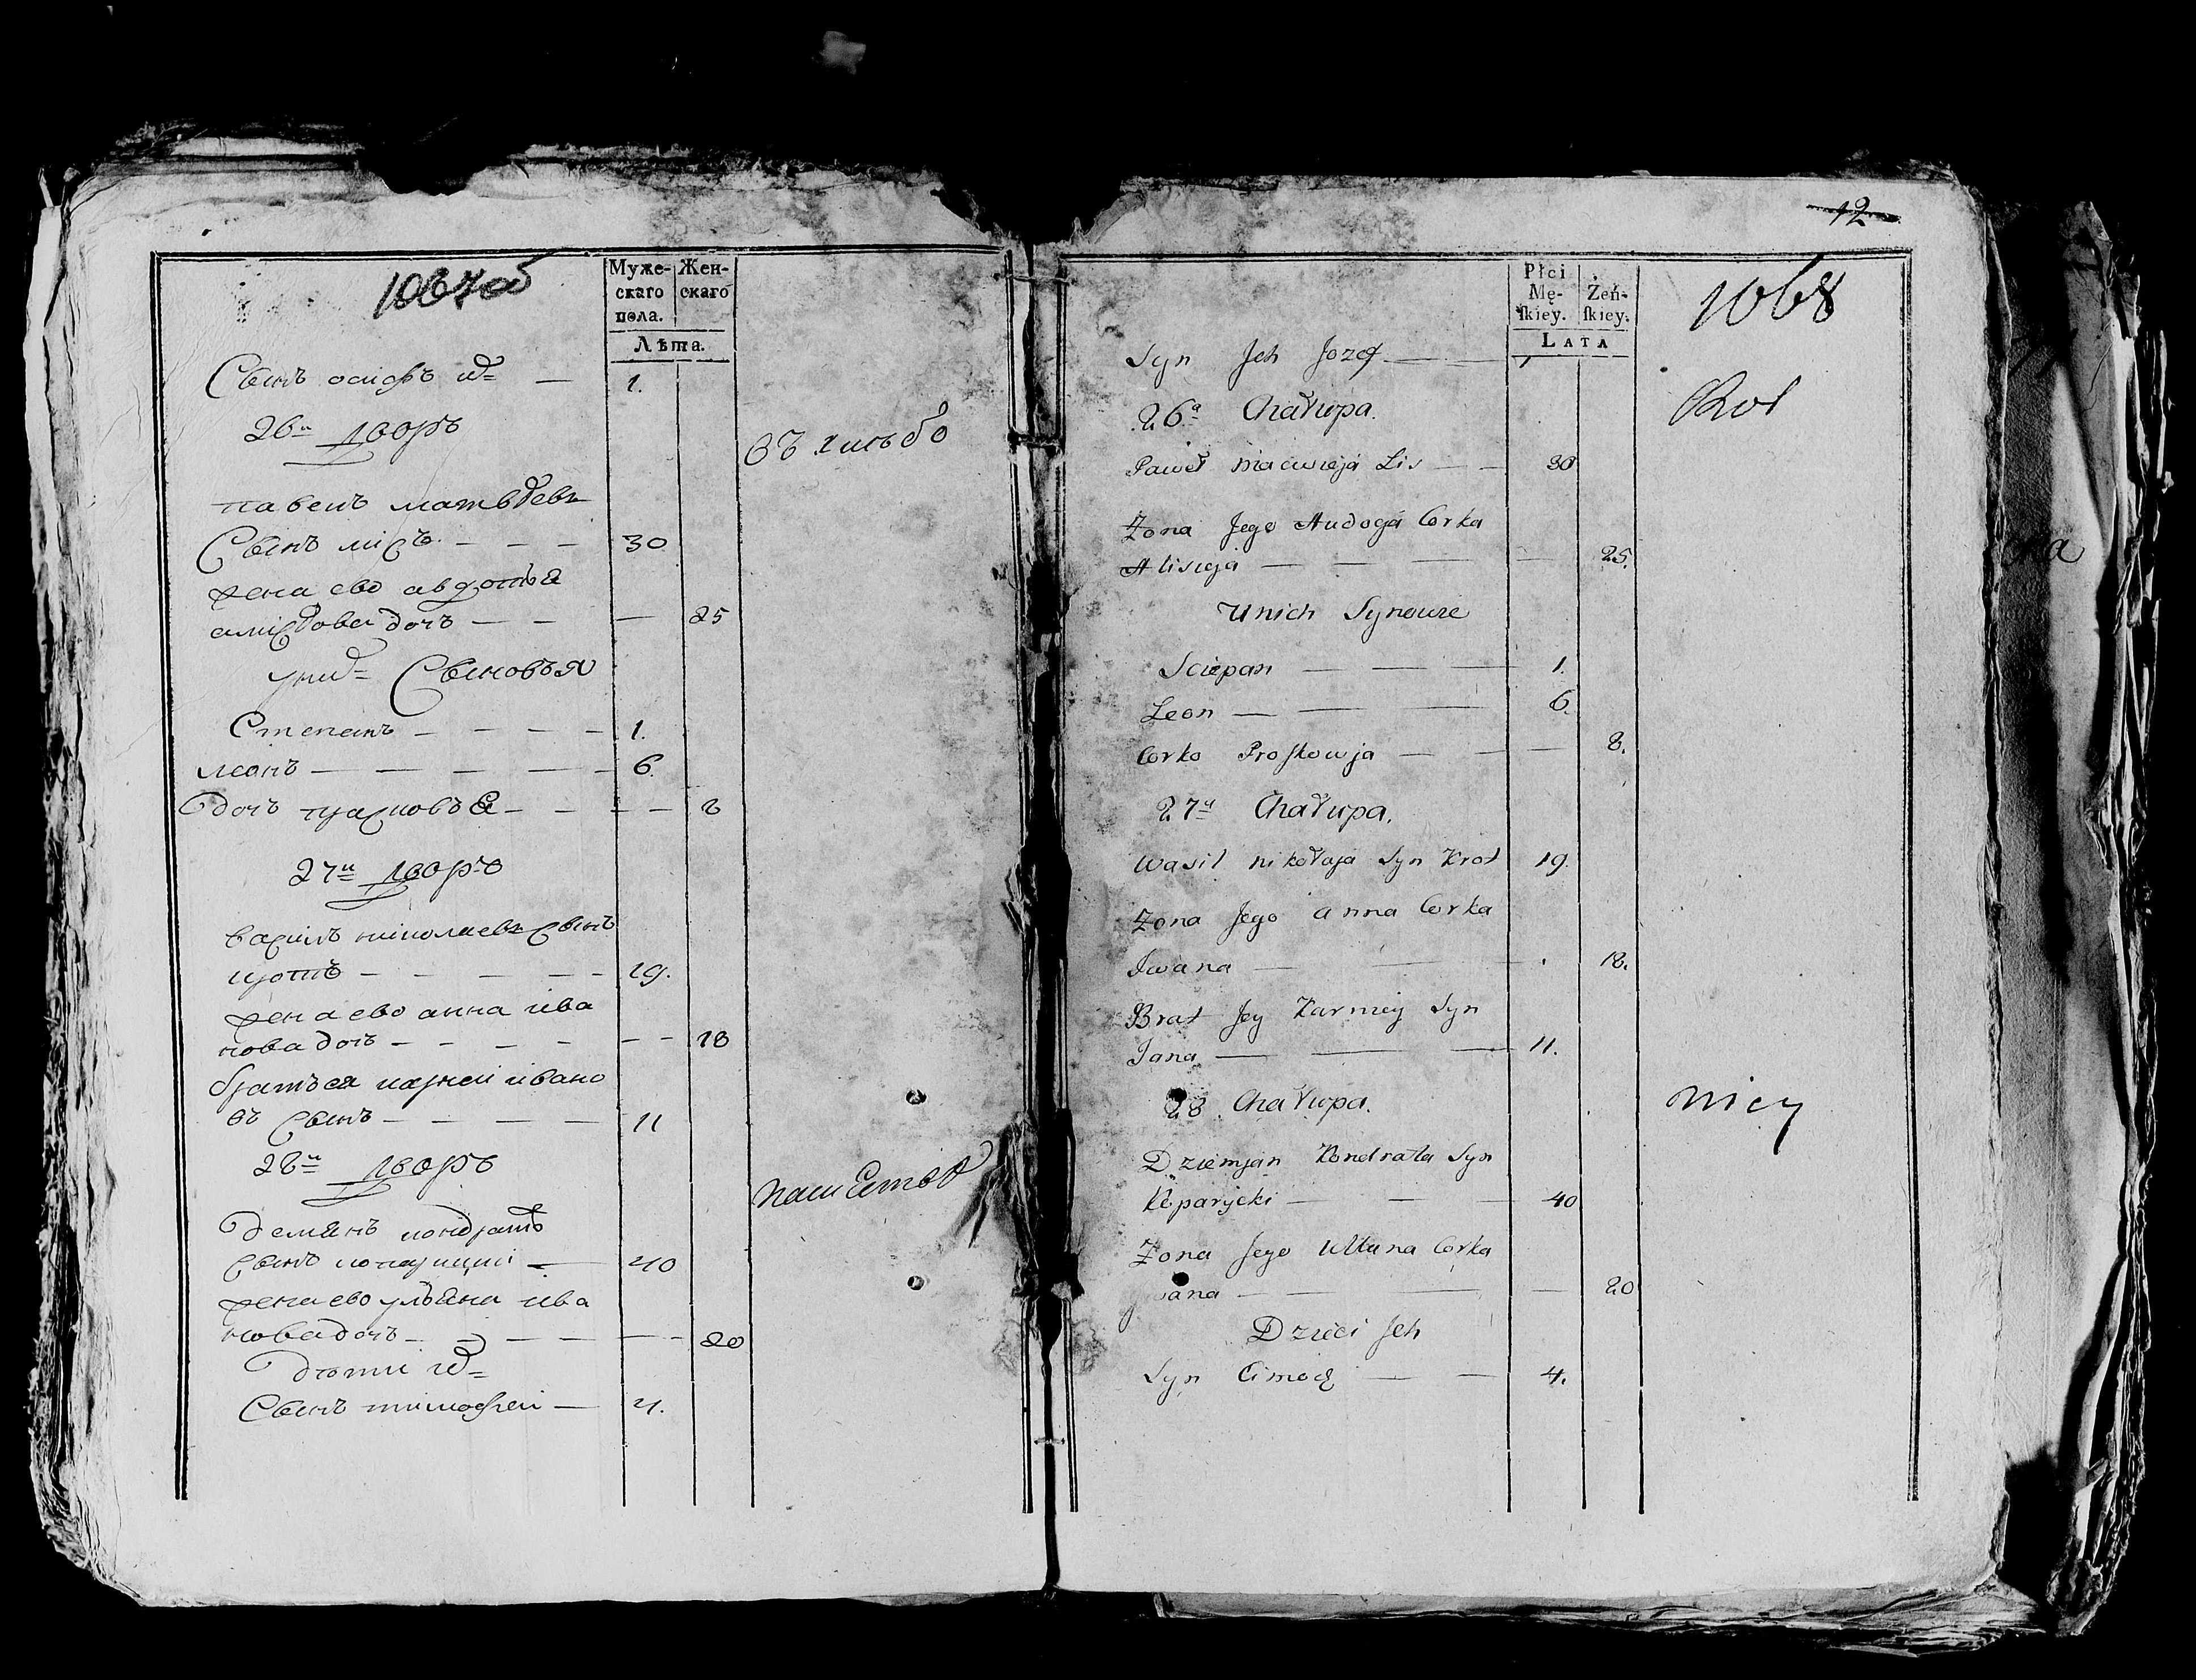 1067об
Муже-
скаго
пола.
Жен-
скаго
Лѣта.
Сынъ осифъ их= — 1.
26й двор
павелъ матвѣевъ
Сынъ лисъ — — — 30
жена ево авдотья
алисѣова дочъ — — — 25
уних= Сыновъя
Степанъ — — — — 1.
леонъ — — — — — 6.
дочъ — — — — 8
27й двор
василъ николаевъ сынъ
кротъ — — — — — 19.
жена ево анна ива
нова дочъ — — — — — — 18
братъ ея карней ивано
въ сынъ — — — — 11
28й двор
демянъ кондратъ
сынъ — 40
жена ево ульяна ива
нова дочъ — — — — — 20
дѣти их=
Сынъ тимофеи — 4.
12
Płci
Mę-
skiey.
Żeń-
skiey.
LATA
1068
Syn Jch Jozef — — 1
26a Chałupa.
Paweł Macwieja Lis — — 30
Żona Jego Audogá Corka
Alisieja — — — — — 25.
Unich Synowie
Sciepan — — — 1.
Leon — — — 6.
Corko Proskowja — — — 8.
27a Chałupa.
Wasil Nikołaja Syn Krot 19.
Żona Jego Anna Corka
Jwana — — 18.
Brat Jey Karniey Syn
Jana — — — 11.
28 Chałupa.
Dziemjan Kondrata Syn
— — — 40
Żona Jego Corka
Jwana — — — — — 20
Dzieci Jch
Syn Cimoch — — 4.